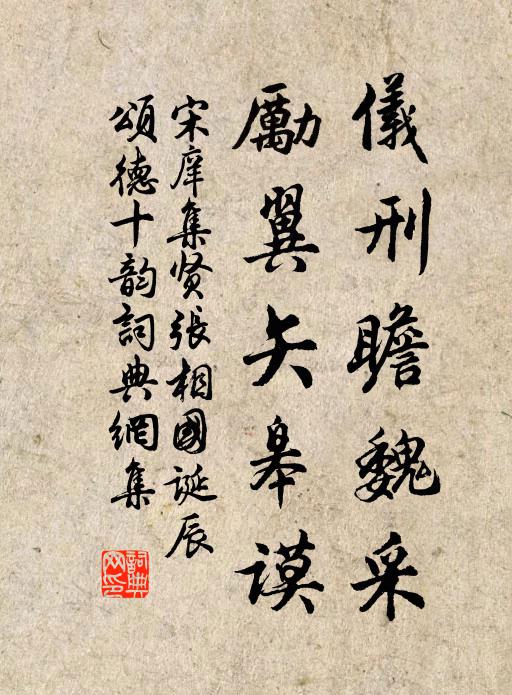 儀刑瞻魏采
勵翼矢皋謨
宋庠集贤張相國誕辰
頌德十韵詞典網集
詞典网印